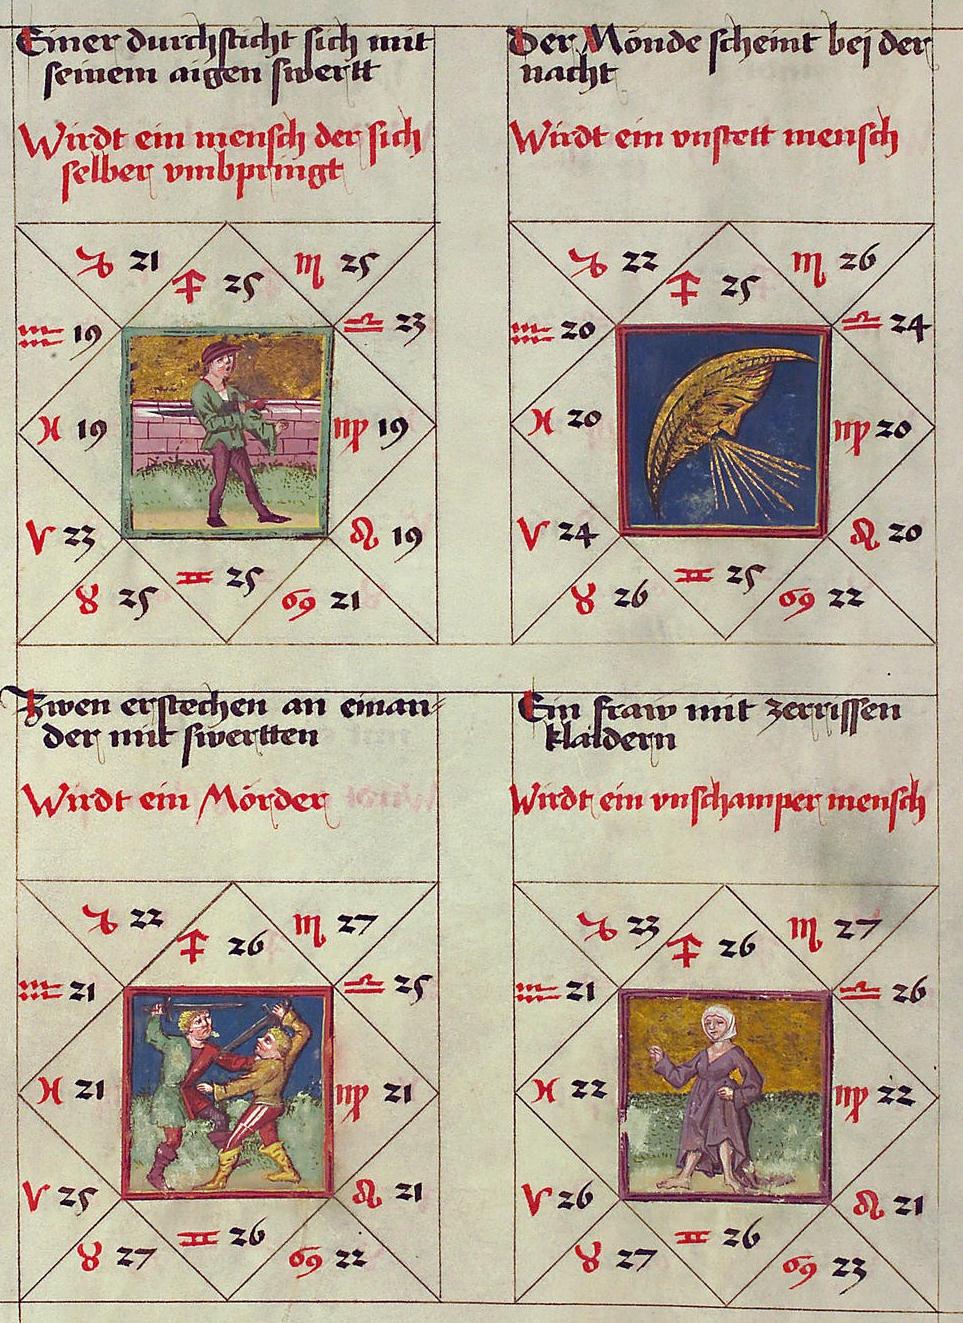 Einer durchsticht sich mit
seinem aigen swertt
Wirdt ein mensch der sich
selber vmbpringt
♑ 21
♐ 25
♏ 25
♒ 19
♎ 23
♓ 19
♍ 19
♈ 23
♌ 19
♉ 25
♊ 25
♋ 21
Der Monde scheint bej der
nacht
Wirdt ein vnstett mensch
♑ 22
♐ 25
♏ 26
♒ 20
♎ 24
♓ 20
♍ 20
♈ 24
♌ 20
♉ 26
♊ 25
♋ 22
Zwen erstechen an einan-
der mit swertten
Wirdt ein Mörder
♑ 22
♐ 26
♏ 27
♒ 21
♎ 25
♓ 21
♍ 21
♈ 25
♌ 21
♉ 27
♊ 26
♋ 22
Ein fraw mit zerrissen
klaidern
Wirdt ein vnschamper mensch
♑ 23
♐ 26
♏ 27
♒ 21
♎ 26
♓ 22
♍ 22
♈ 26
♌ 21
♉ 27
♊ 26
♋ 23